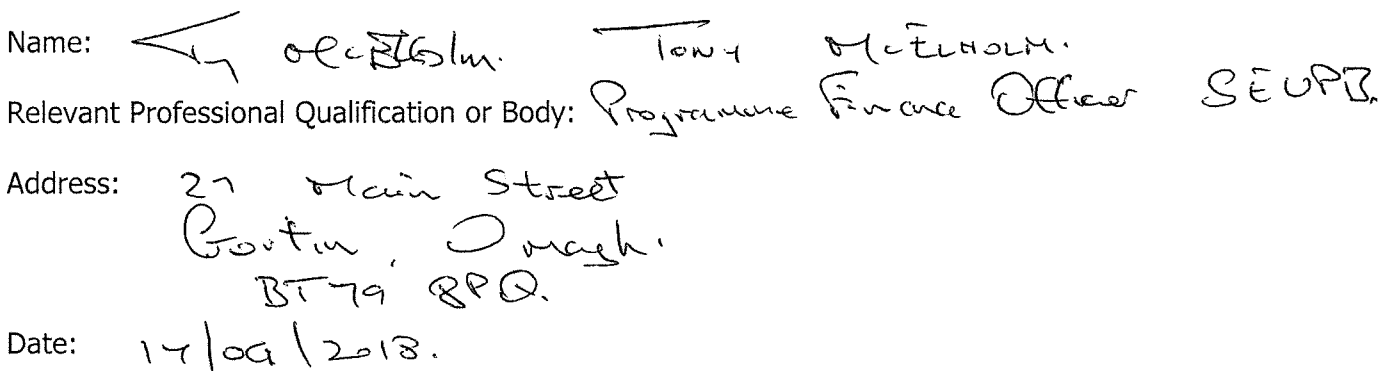 Name: Ty McElholm. TONY McELHOLM.
Relevant Professional Qualification or Body: Programme Finance Officer SEUPB.
Address: 27 Main Street
Gortin, Omagh.
BT79 8PQ.
Date: 17/09/2013.